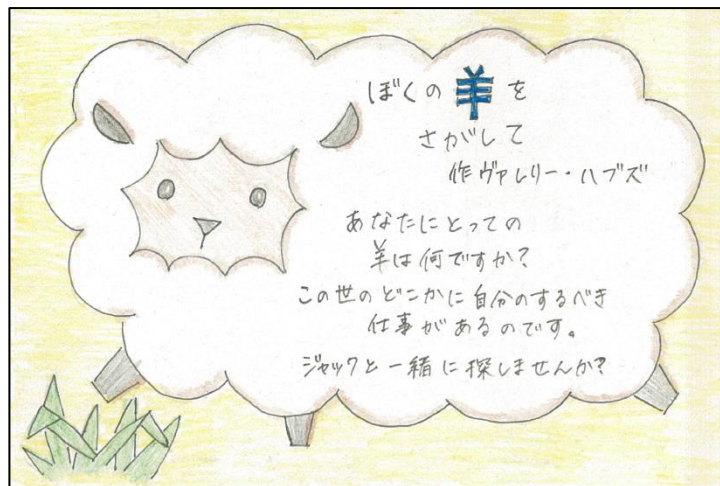 ぼくの羊を
さがして
作ヴァレリー・ハブズ
あなたにとっての
羊は何ですか?
この世のどこかに自分のするべき
仕事があるのです。
ジャックと一緒に探しませんか?